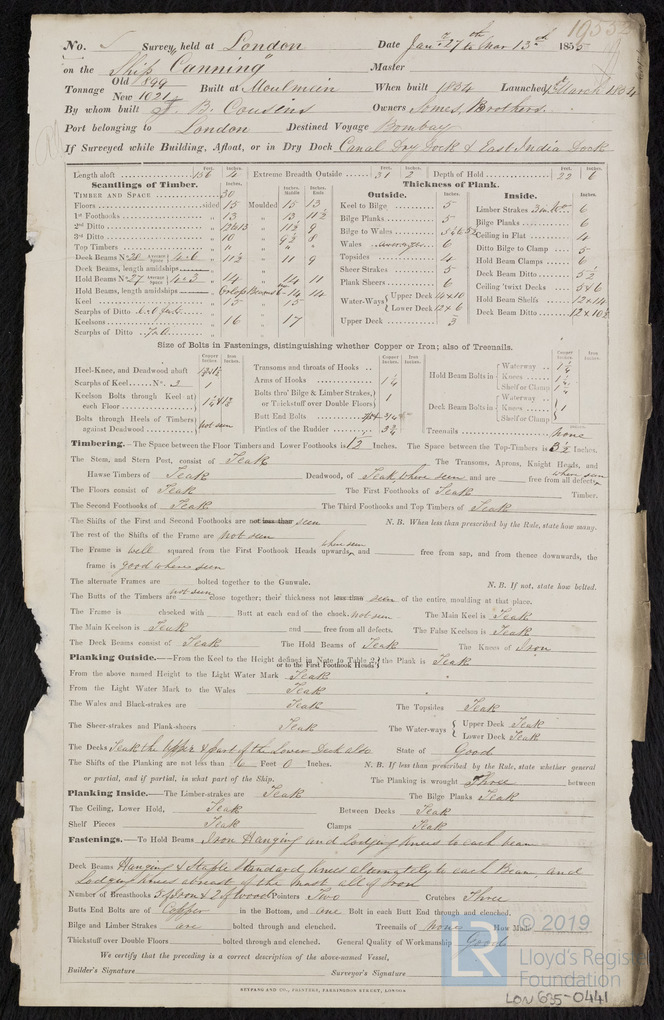 19532
No. Survey held at London Date Jany 27th to Mar 13th 1855
on the Ship "Canning" Master
Tonnage Old 899 New 1021 Built at Moulmein When built 1854 Launched March 1854
By whom built B. Cousins Owners Somes, Brothers.
Port belonging to London Destined Voyage Bombay
If Surveyed while Building, Afloat, or in Dry Dock Canal Dry Dock & East India Dock
Feet. Inches. Feet. Inches. Feet. Inches.
Length aloft 156 4 Extreme Breadth Outside 31 2 Depth of Hold 22 6
Scantlings of Timber.
TIMBER AND SPACE 30
Floors sided 15 Moulded 15 13
1st Foothooks „ 13 „ 13 11½
2nd Ditto „ „ 11½ 9
3rd Ditto „ 10 „ 9½ 8
Top Timbers „ „ „ „
Deck Beams No. 28 Average Space 4..6 „ 11½ „ 11 9
Deck Beams, length amidships
Hold Beams No. 27 Average Space 4..3 „ 14 „ 14 11
Hold Beams, length amidships
Keel „ 15 „ 15
Scarphs of Ditto
Keelsons „ 16 „ 17
Scarphs of Ditto
Thickness of Plank.
Outside.
Keel to Bilge 5
Bilge Planks 5
Bilge to Wales
Wales average 6
Topsides 4
Sheer Strakes 5
Plank Sheers 6
Water-Ways { Upper Deck 14x10
Lower Deck 12x6
Upper Deck 3
Inside.
Limber Strakes 6
Bilge Planks 6
Ceiling in Flat 4
Ditto Bilge to Clamp 5
Hold Beam Clamps 6
Deck Beam Ditto 5½
Ceiling 'twixt Decks 5&6
Hold Beam Shelfs 12x14
Deck Beam Ditto
Size of Bolts in Fastenings, distinguishing whether Copper or Iron; also of Treenails.
Heel-Knee, and Deadwood abaft
Scarphs of Keel No. 2 1
Keelson Bolts through Keel at each Floor
Bolts through Heels of Timbers against Deadwood not seen
Transoms and throats of Hooks
Arms of Hooks 1¼
Bolts thro' Bilge & Limber Strakes, or Thickstuff over Double Floors 1
Butt End Bolts
Pintles of the Rudder
Hold Beam Bolts in { Waterway
Knees
Shelf or Clamp
Deck Beam Bolts in { Waterway
Knees 1
Shelf or Clamp
Treenails none
Timbering.—The Space between the Floor Timbers and Lower Foothooks is 12 Inches. The Space between the Top-Timbers is 3½ Inches.
The Stem, and Stern Post, consist of Teak The Transoms, Aprons, Knight Heads, and
Hawse Timbers of Teak Deadwood, of Teak where seen and are free from all defects where seen
The Floors consist of Teak The First Foothooks of Teak Timber.
The Second Foothooks of Teak The Third Foothooks and Top Timbers of Teak
The Shifts of the First and Second Foothooks are not less than seen N.B. When less than prescribed by the Rule, state how many.
The rest of the Shifts of the Frame are not seen
The Frame is well squared from the First Foothook Heads upwards, where seen and free from sap, and from thence downwards, the
frame is good where seen
The alternate Frames are bolted together to the Gunwale. N.B. If not, state how bolted.
The Butts of the Timbers are not seen close together; their thickness not less than seen of the entire moulding at that place.
The Frame is chocked with Butt at each end of the chock. not seen The Main Keel is Teak
The Main Keelson is Teak and free from all defects. The False Keelson is Teak
The Deck Beams consist of Teak The Hold Beams of Teak The Knees of Iron
Planking Outside.—From the Keel to the Height defined in Note to Table 2, or to the First Foothook Heads } the Plank is Teak
From the above named Height to the Light Water Mark Teak
From the Light Water Mark to the Wales Teak
The Wales and Black-strakes are Teak The Topsides Teak
The Sheer-strakes and Plank-sheers Teak The Water-ways { Upper Deck Teak
Lower Deck Teak
The Decks Teak the Upper & part of the Lower Deck also State of Good
The Shifts of the Planking are not less than 6 Feet 0 Inches. N.B. If less than prescribed by the Rule, state whether general
or partial, and if partial, in what part of the Ship. The Planking is wrought Three between
Planking Inside.—The Limber-strakes are Teak The Bilge Planks Teak
The Ceiling, Lower Hold, Teak Between Decks Teak
Shelf Pieces Teak Clamps Teak
Fastenings.—To Hold Beams Iron Hanging and Lodging knees to each beam
Deck Beams Hanging & Staple Standard knees alternately to each Beam, and
Lodging knees abreast of the mast all of Iron
Number of Breasthooks 5 of Iron & 2 of wood Pointers Two Crutches Three
Butts End Bolts are of Copper in the Bottom, and one Bolt in each Butt End through and clenched.
Bilge and Limber Strakes are bolted through and clenched. Treenails of none How Made
Thickstuff over Double Floors bolted through and clenched. General Quality of Workmanship Good
We certify that the preceding is a correct description of the above-named Vessel,
Builder's Signature Surveyor's Signature
SEYFANG AND CO., PRINTERS, FARRINGDON STREET, LONDON
© 2019
LR
Lloyd's Register
Foundation
LON 635-0441